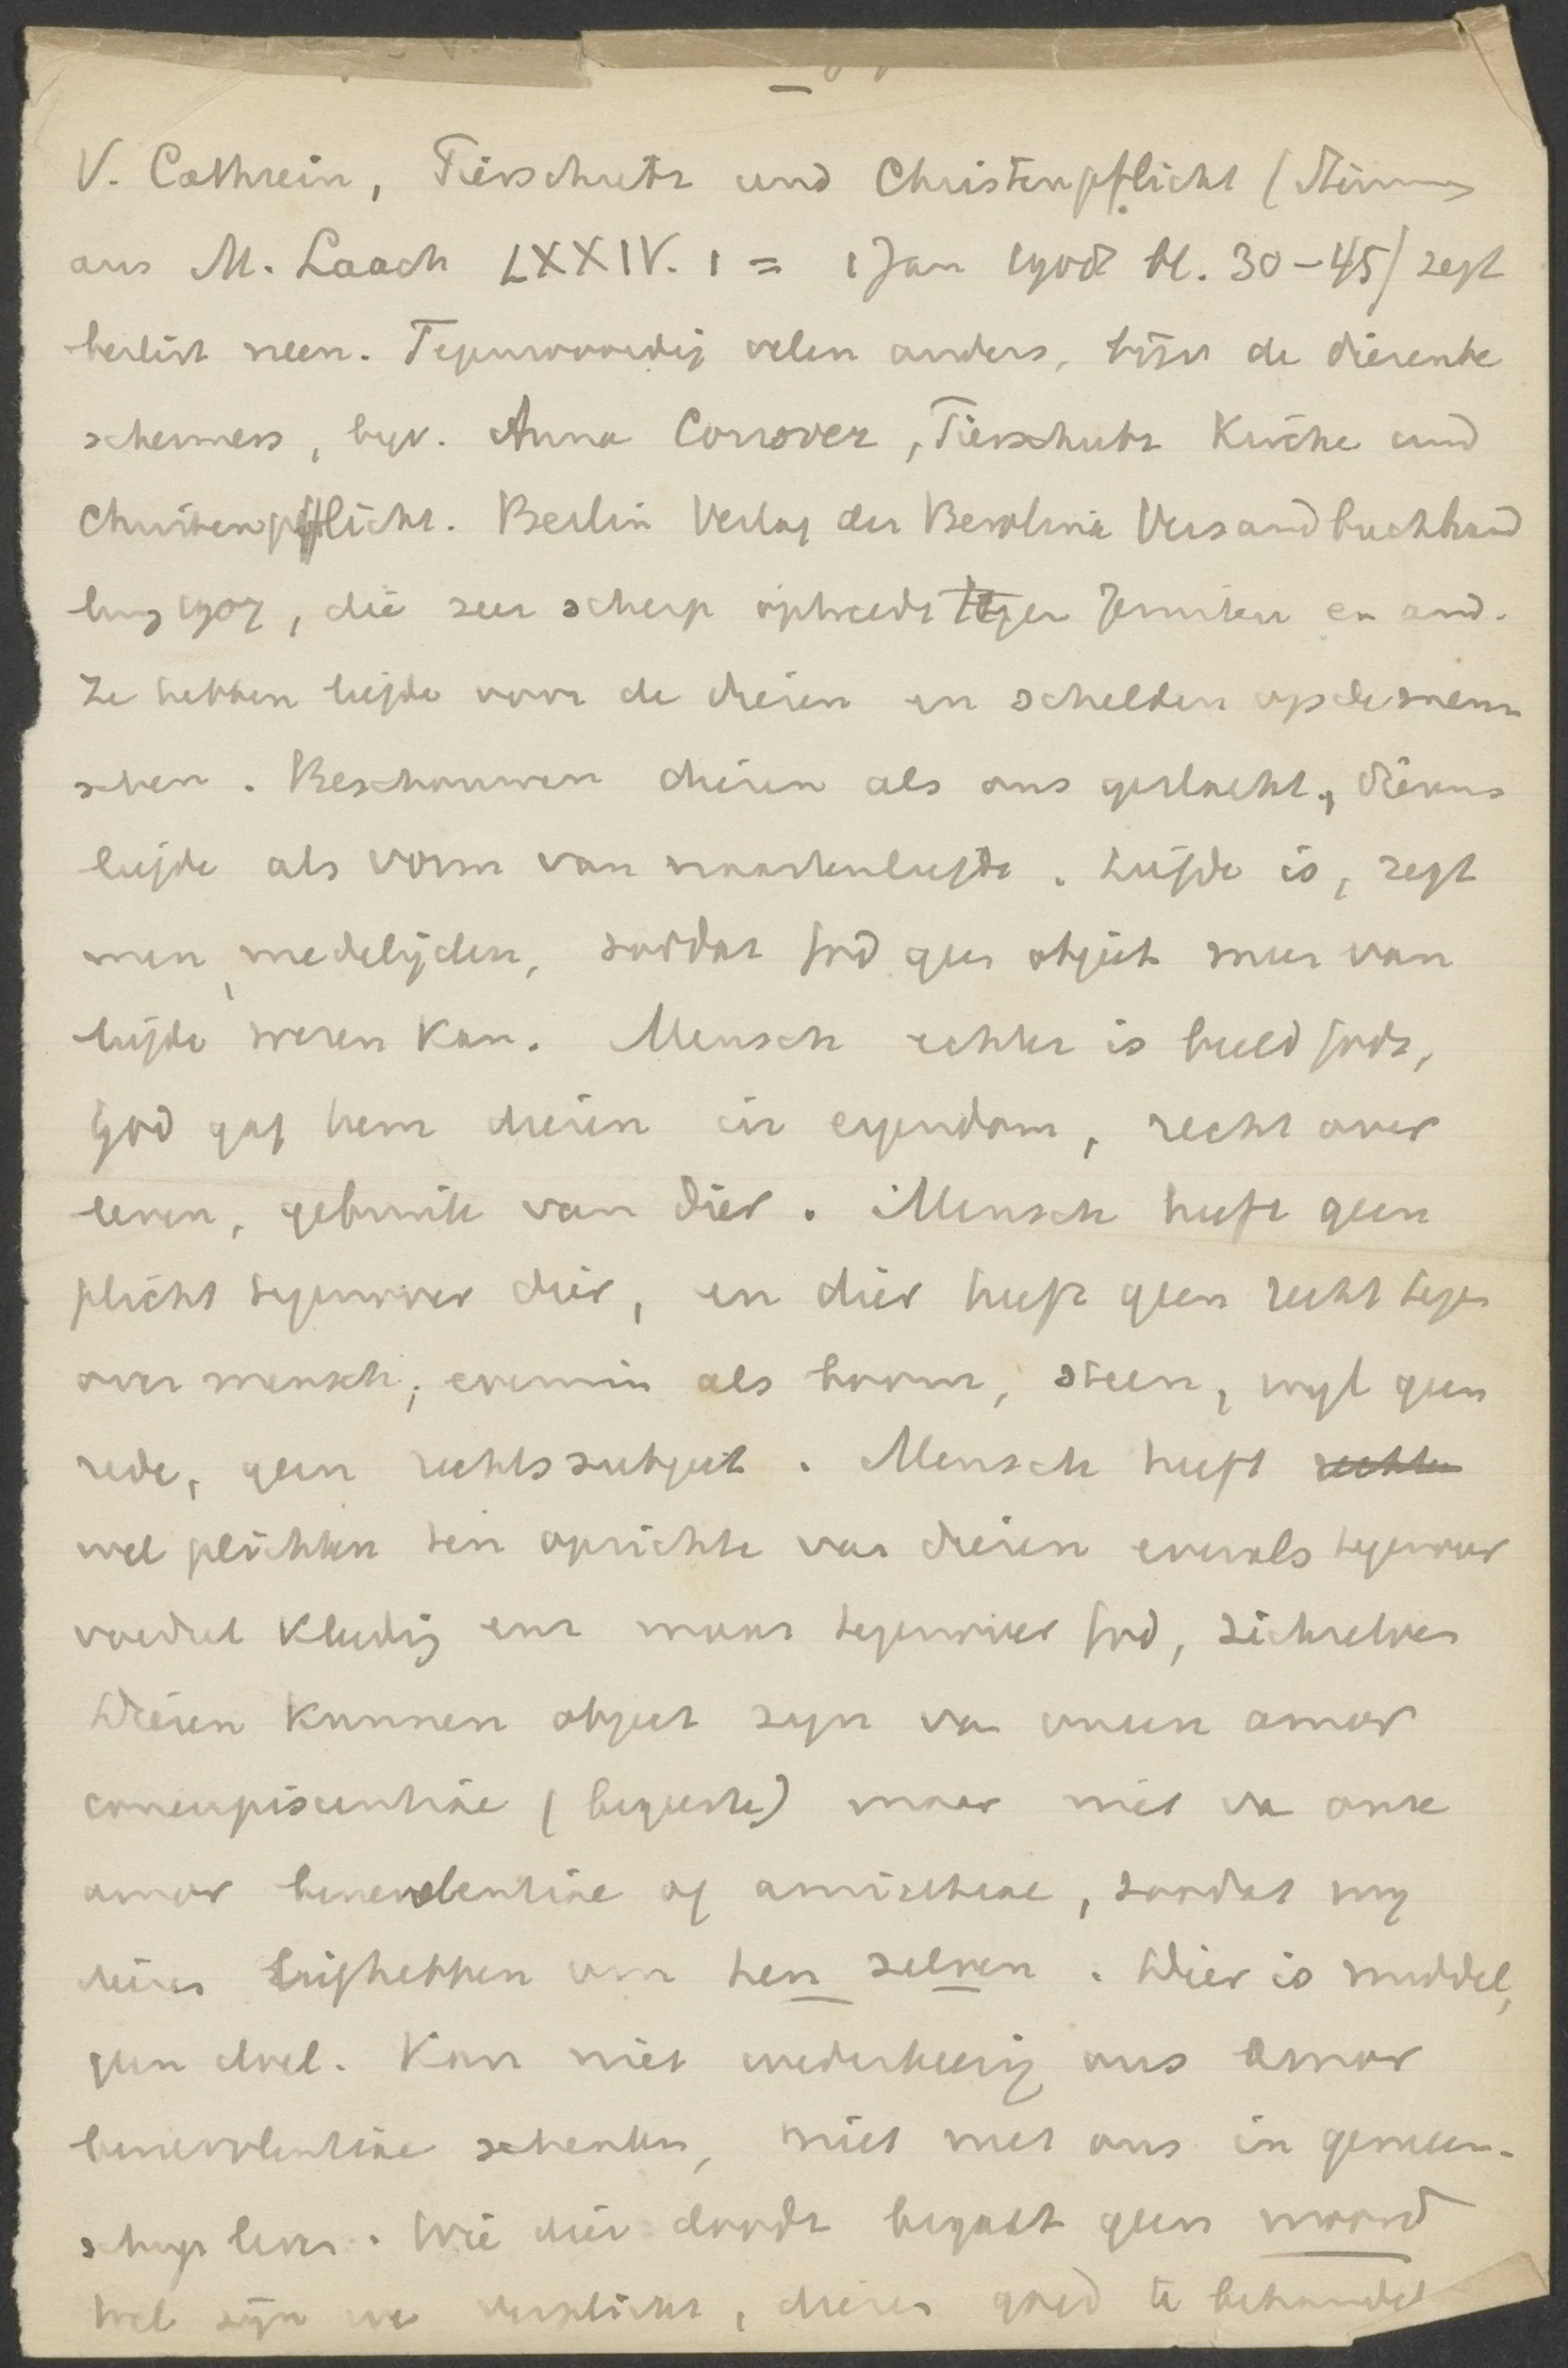 V. Cathrein, Tierschutz und Christenpflicht (Stimmen
aus M. Laach LXXIV. 1 = 1 Jan 1908 bl. 30-45) zegt
beslist neen. Tegenwoordig velen anders, bijv de dierenbe
schermers, byv. Anna Conover, Tierschutz Kirche und
Christenpflicht. Berlin Verlag der Berolina Versandbuchhand
lung 1907, die zeer scherp optreedt tegen Jezuiten en and.
Ze hebben liefde voor de dieren en schelden op de men
schen. Beschouwen dieren als ons geslacht, dieren
liefde als vorm van naastenliefde. Liefde is, zegt
men, medelijden, zoodat God geen object meer van
liefde wezen kan. Mensch echter is beeld Gods,
God gaf hem dieren in eigendom, recht over
leven, gebruik van dier. Mensch heeft geen
plicht tegenover dier, en dier heeft geen recht tegen
over mensch, evenmin als boom, steen, wyl geen
rede, geen rechtssubject. Mensch heeft echter
wel plichten ten opzichte van dieren evenals tegenover
voedsel kleeding enz maar tegenover God, zichzelven
Dieren kunnen object zyn van onzen amor
concupiscentiae (begeerte) maar niet van onze
amor benevolentiae of amicitiae, zoodat wy
dieren liefhebben om hen zelven. Dier is middel,
geen doel. Kan niet wederkeerig ons amor
benevolentiae schenken, niet met ons in gemeen-
schap leven. Wie dier doodt begaat geen moord
Wel zijn we verplicht, dieren goed te behandel